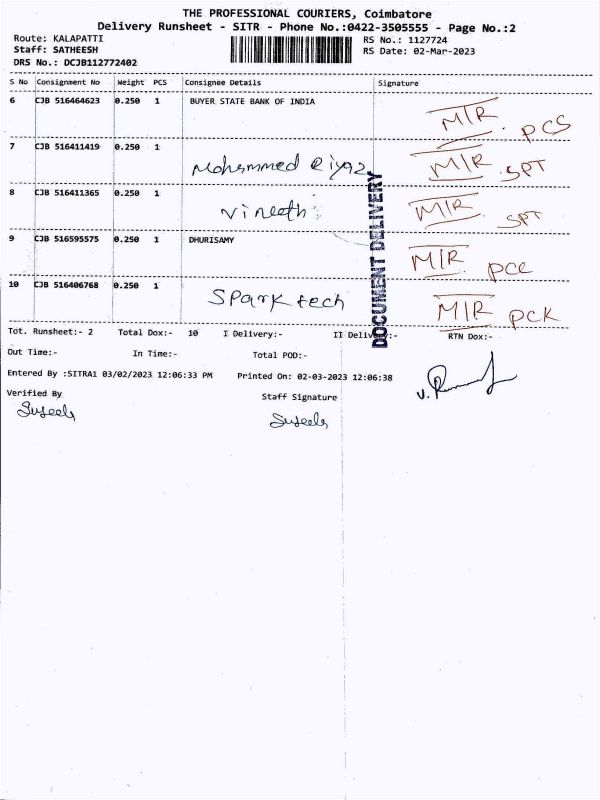 THE PROFESSIONAL COURIERS, Coimbatore
Delivery Runsheet - SITR - Phone No.:0422-3505555 - Page No.:2
Route: KALAPATTI
Staff: SATHEESH
DRS No.: DCJB112772402
RS No.: 1127724
RS Date: 02-Mar-2023
S No Consignment No Weight PCS Consignee Details Signature
6 CJB 516464623 0.250 1 BUYER STATE BANK OF INDIA M/R PCS
7 CJB 516411419 0.250 1 Mohammed Riyaz M/R SPT
8 CJB 516411365 0.250 1 Vineeth M/R SPT
9 CJB 516595575 0.250 1 DHURISAMY M/R PCC
10 CJB 516406768 0.250 1 Spark tech M/R PCK
DOCUMENT DELIVERY
Tot. Runsheet:- 2 Total Dox:- 10 I Delivery:- II Delivery:- RTN Dox:-
Out Time:- In Time:- Total POD:-
Entered By :SITRA1 03/02/2023 12:06:33 PM Printed On: 02-03-2023 12:06:38
Verified By Staff Signature